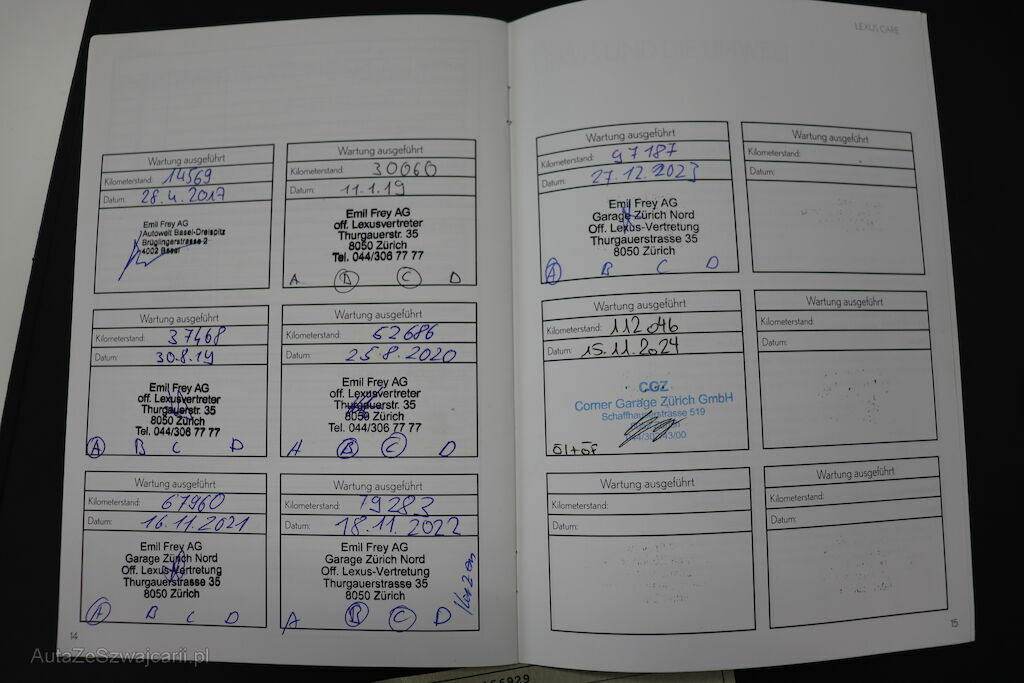 LEXUS CARE
Wartung ausgeführt
Kilometerstand: 14569
Datum: 28.4.2017
Emil Frey AG
Autowelt Basel-Dreispitz
Brüglingerstrasse 2
4002 Basel
Wartung ausgeführt
Kilometerstand: 30060
Datum: 11.1.19
Emil Frey AG
off. Lexusvertreter
Thurgauerstr. 35
8050 Zürich
Tel. 044/306 77 77
A B C D
Wartung ausgeführt
Kilometerstand: 37468
Datum: 30.8.19
Emil Frey AG
off. Lexusvertreter
Thurgauerstr. 35
8050 Zürich
Tel. 044/306 77 77
A B C D
Wartung ausgeführt
Kilometerstand: 52686
Datum: 25.8.2020
Emil Frey AG
off. Lexusvertreter
Thurgauerstr. 35
8050 Zürich
Tel. 044/306 77 77
A B C D
Wartung ausgeführt
Kilometerstand: 67960
Datum: 16.11.2021
Emil Frey AG
Garage Zürich Nord
Off. Lexus-Vertretung
Thurgauerstrasse 35
8050 Zürich
A B C D
Wartung ausgeführt
Kilometerstand: 79283
Datum: 18.11.2022
Emil Frey AG
Garage Zürich Nord
Off. Lexus-Vertretung
Thurgauerstrasse 35
8050 Zürich
A B C D
14
Wartung ausgeführt
Kilometerstand: 97187
Datum: 27.12.2023
Emil Frey AG
Garage Zürich Nord
Off. Lexus-Vertretung
Thurgauerstrasse 35
8050 Zürich
A B C D
Wartung ausgeführt
Kilometerstand:
Datum:
Wartung ausgeführt
Kilometerstand: 112046
Datum: 15.11.2024
CGZ
Corner Garage Zürich GmbH
Schaffhauserstrasse 519
Öl+ÖF
Wartung ausgeführt
Kilometerstand:
Datum:
Wartung ausgeführt
Kilometerstand:
Datum:
Wartung ausgeführt
Kilometerstand:
Datum:
15
AutaZeSzwajcarii.pl